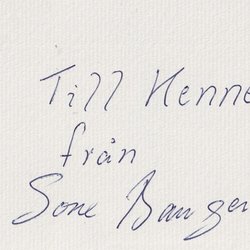 Till Kenne
från
Sone Banger